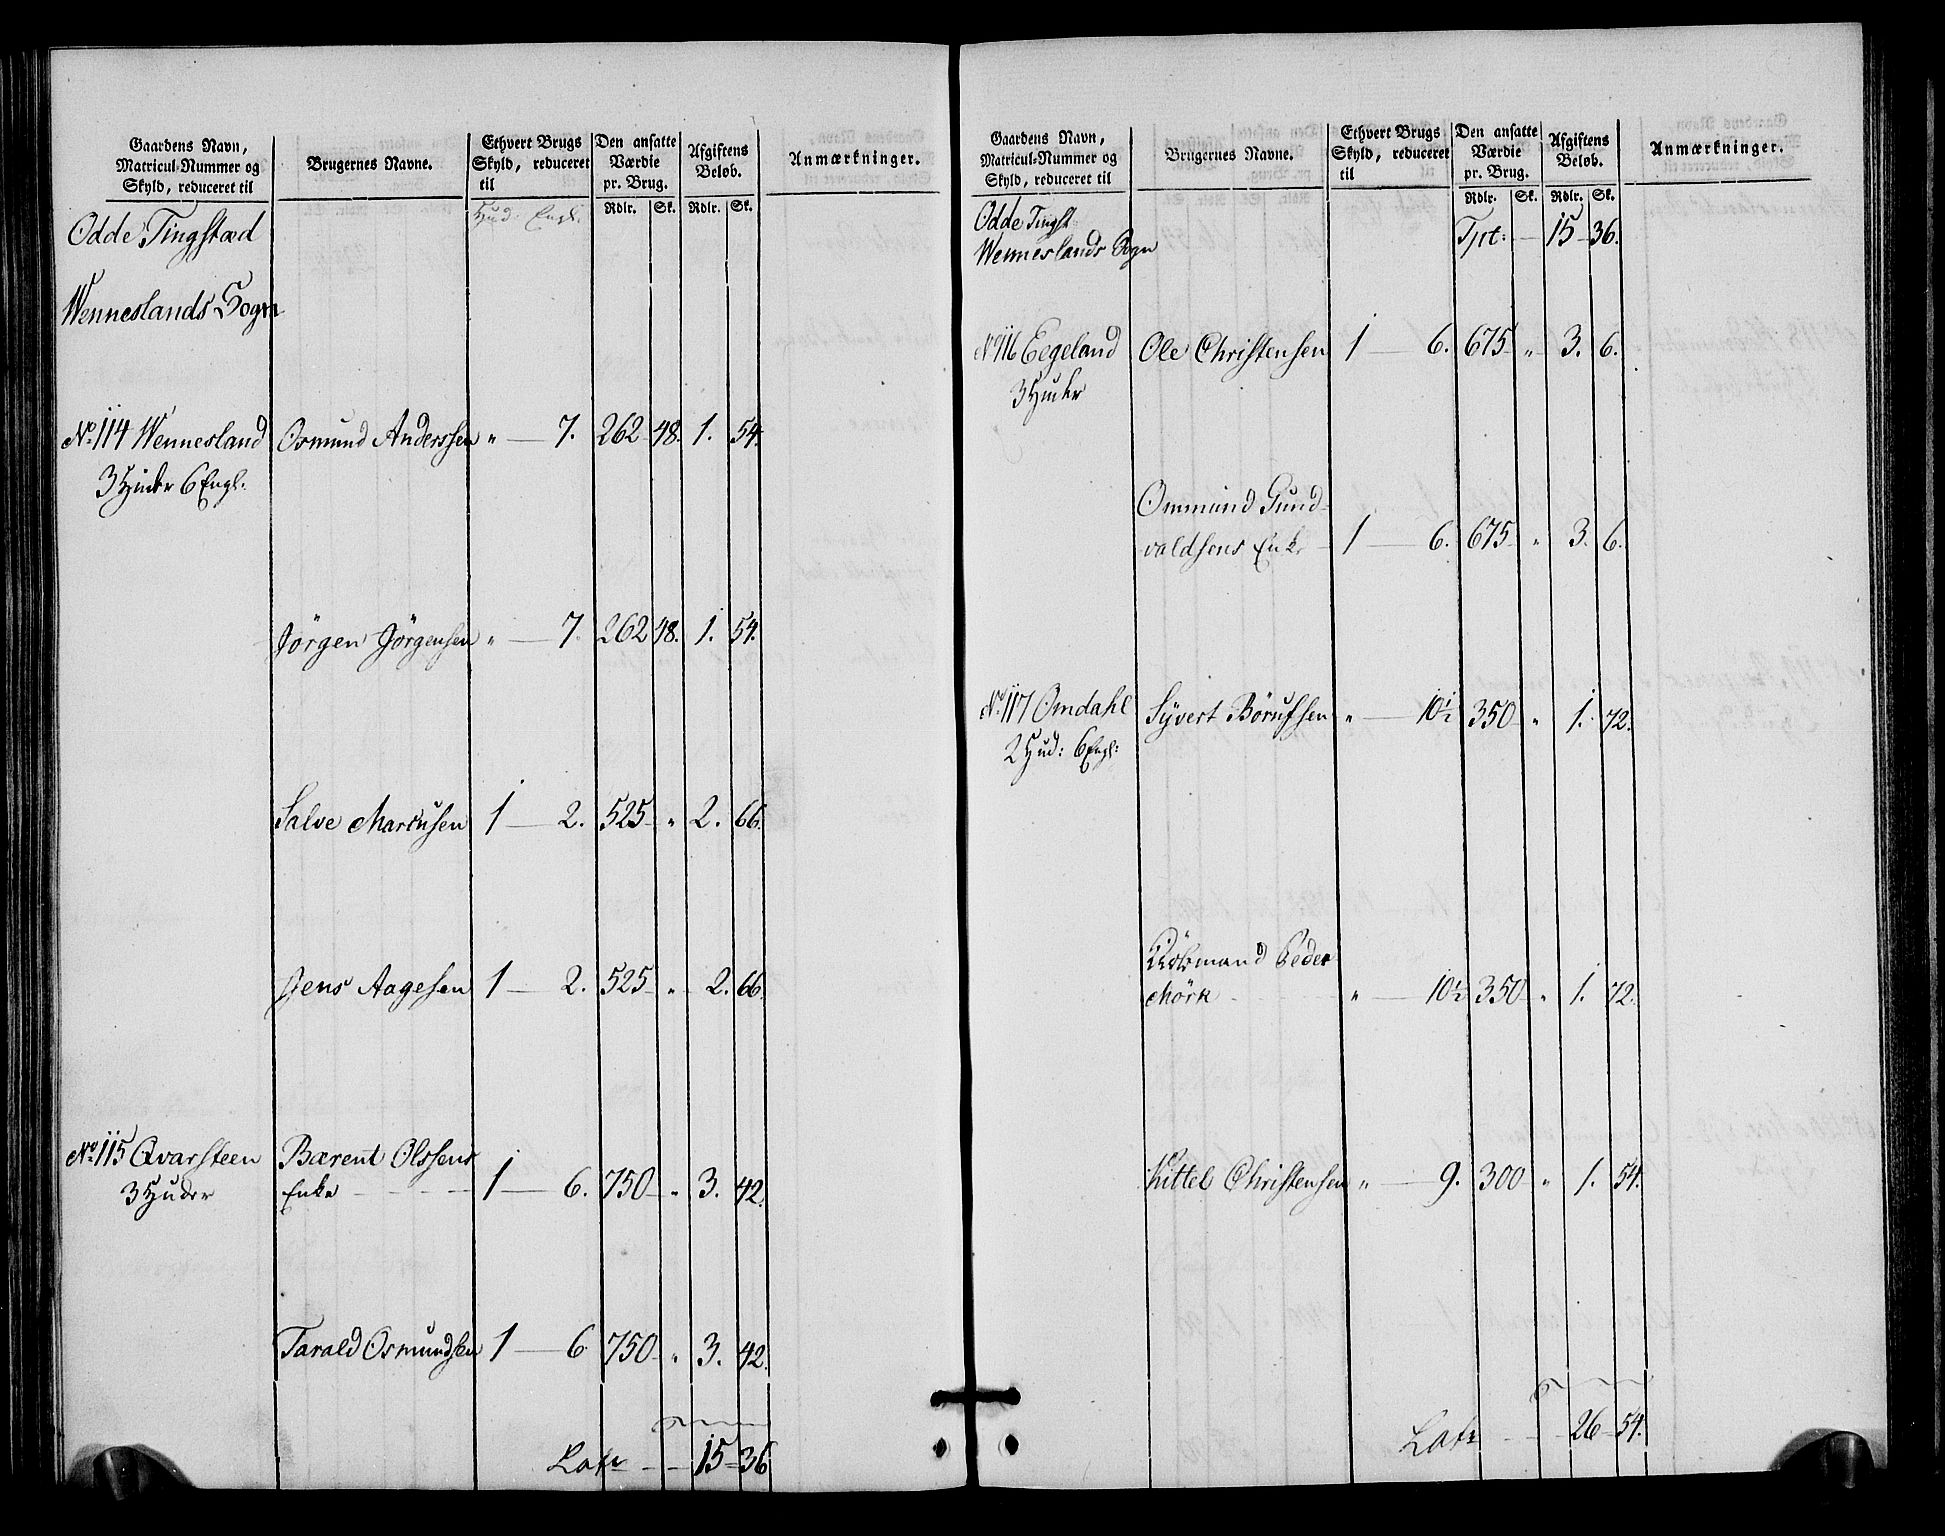 Gaardens Navn, Matricul-Nummer og Skyld, reduceret til | Brugernes Navne. | Ethvert Brugs Skyld, reduceret til | Den ansatte Værdie pr. Brug. | Afgiftens Beløb. | Anmærkninger.
Hud: Engl: | Rdlr. | Sk. | Rdlr. | Sk.
Odde Tingstæd
Wenneslands Sogn
No. 114 Wennesland | Osmund Anderssen | " — 7. | 262 | 48. | 1. | 54.
3 Huder 6 Engl.
Jörgen Jörgensen | " — 7. | 262 | 48. | 1. | 54.
Salve Marcusen | 1 — 2. | 525 | " | 2. | 66.
Jens Aagesen | 1 — 2. | 525 | " | 2. | 66.
No. 115 Qvarsteen | Bærent Olssens
3 Huder | Enke | 1 — 6. | 750 | " | 3. | 42.
Tarald Osmundsen | 1 — 6 | 750 | " | 3. | 42.
Late | 15 | 36
Gaardens Navn, Matricul-Nummer og Skyld, reduceret til | Brugernes Navne. | Ethvert Brugs Skyld, reduceret til | Den ansatte Værdie pr. Brug. | Afgiftens Beløb. | Anmærkninger.
Rdlr. | Sk. | Rdlr. | Sk.
Odde Tingst: | Tpt: | 15 | 36.
Wenneslands Sogn
No. 116 Eegeland | Ole Christensen | 1 — 6. | 675 | " | 3. | 6.
3 Huder
Ommund Gund-
valdsens Enke | 1 — 6. | 675 | " | 3. | 6.
No. 117 Omdahl | Syvert Börufsen | " — 10½ | 350 | " | 1. | 72.
2 Hud: 6 Engl:
Kiöbmand Peder
Mörk | " — 10½ | 350 | " | 1. | 72.
Kittel Christensen | " — 9. | 300 | " | 1. | 54.
Late | 26 | 54.